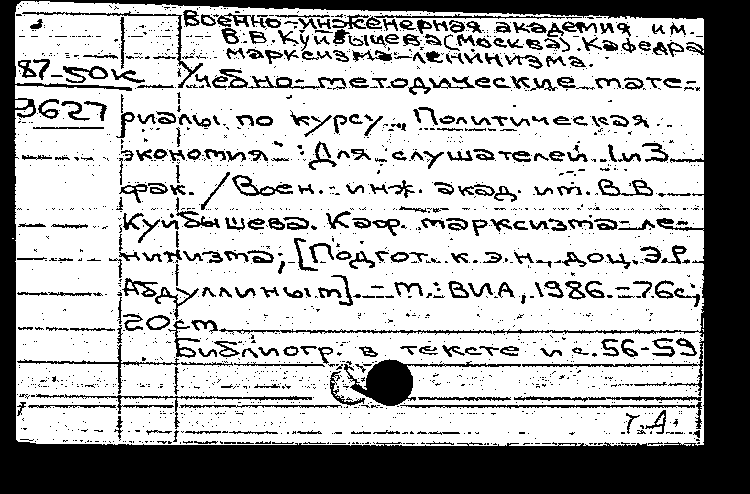 Военно-инженерная академия им.
В.В.Куйбышева(Москва). Кафедра
марксизма-ленинизма.
87-50к Учебно-методические мате-
9627 риалы по курсу „Политическая
экономия“: Для слушателей 1и3
фак. / Воен.-инж. акад. им. В.В.
Куйбышева. Каф. марксизма-ле-
нинизма; [Подгот. к.э.н., доц. Э.Р.
Абдуллиным]. - М.: ВИА, 1986. - 76с;
20см.
Библиогр. в тексте и с. 56-59
Т.А.